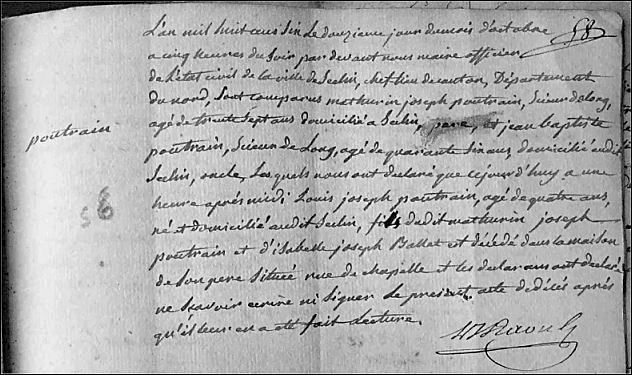 L'an mil huit cens six le douzieme jour du mois d'octobre
58
a cinq heures du soir par devant nous maire officier
de l'état civil de la ville de Seclin, chef lieu de canton, Département
du nord, sont comparus mathurin joseph poutrain, Scieur de long,
agé de trente sept ans domicilié a Seclin, pere, et jean baptiste
poutrain
poutrain, Scieur de Long, agé de quarante six ans, domicilié audit
Seclin, oncle, Lesquels nous ont declaré que cejourd'huy a une
heure après midi Louis joseph poutrain, agé de quatre ans,
58
né et domicilié audit Seclin, fils dudit mathurin joseph
poutrain et d'isabelle joseph Ballet est décédé dans la maison
de son pere située rue de chapelle et les declarans ont declaré
ne Savoir ecrire ni Signer le present acte de décès après
qu'il leur en a eté fait Lecture.